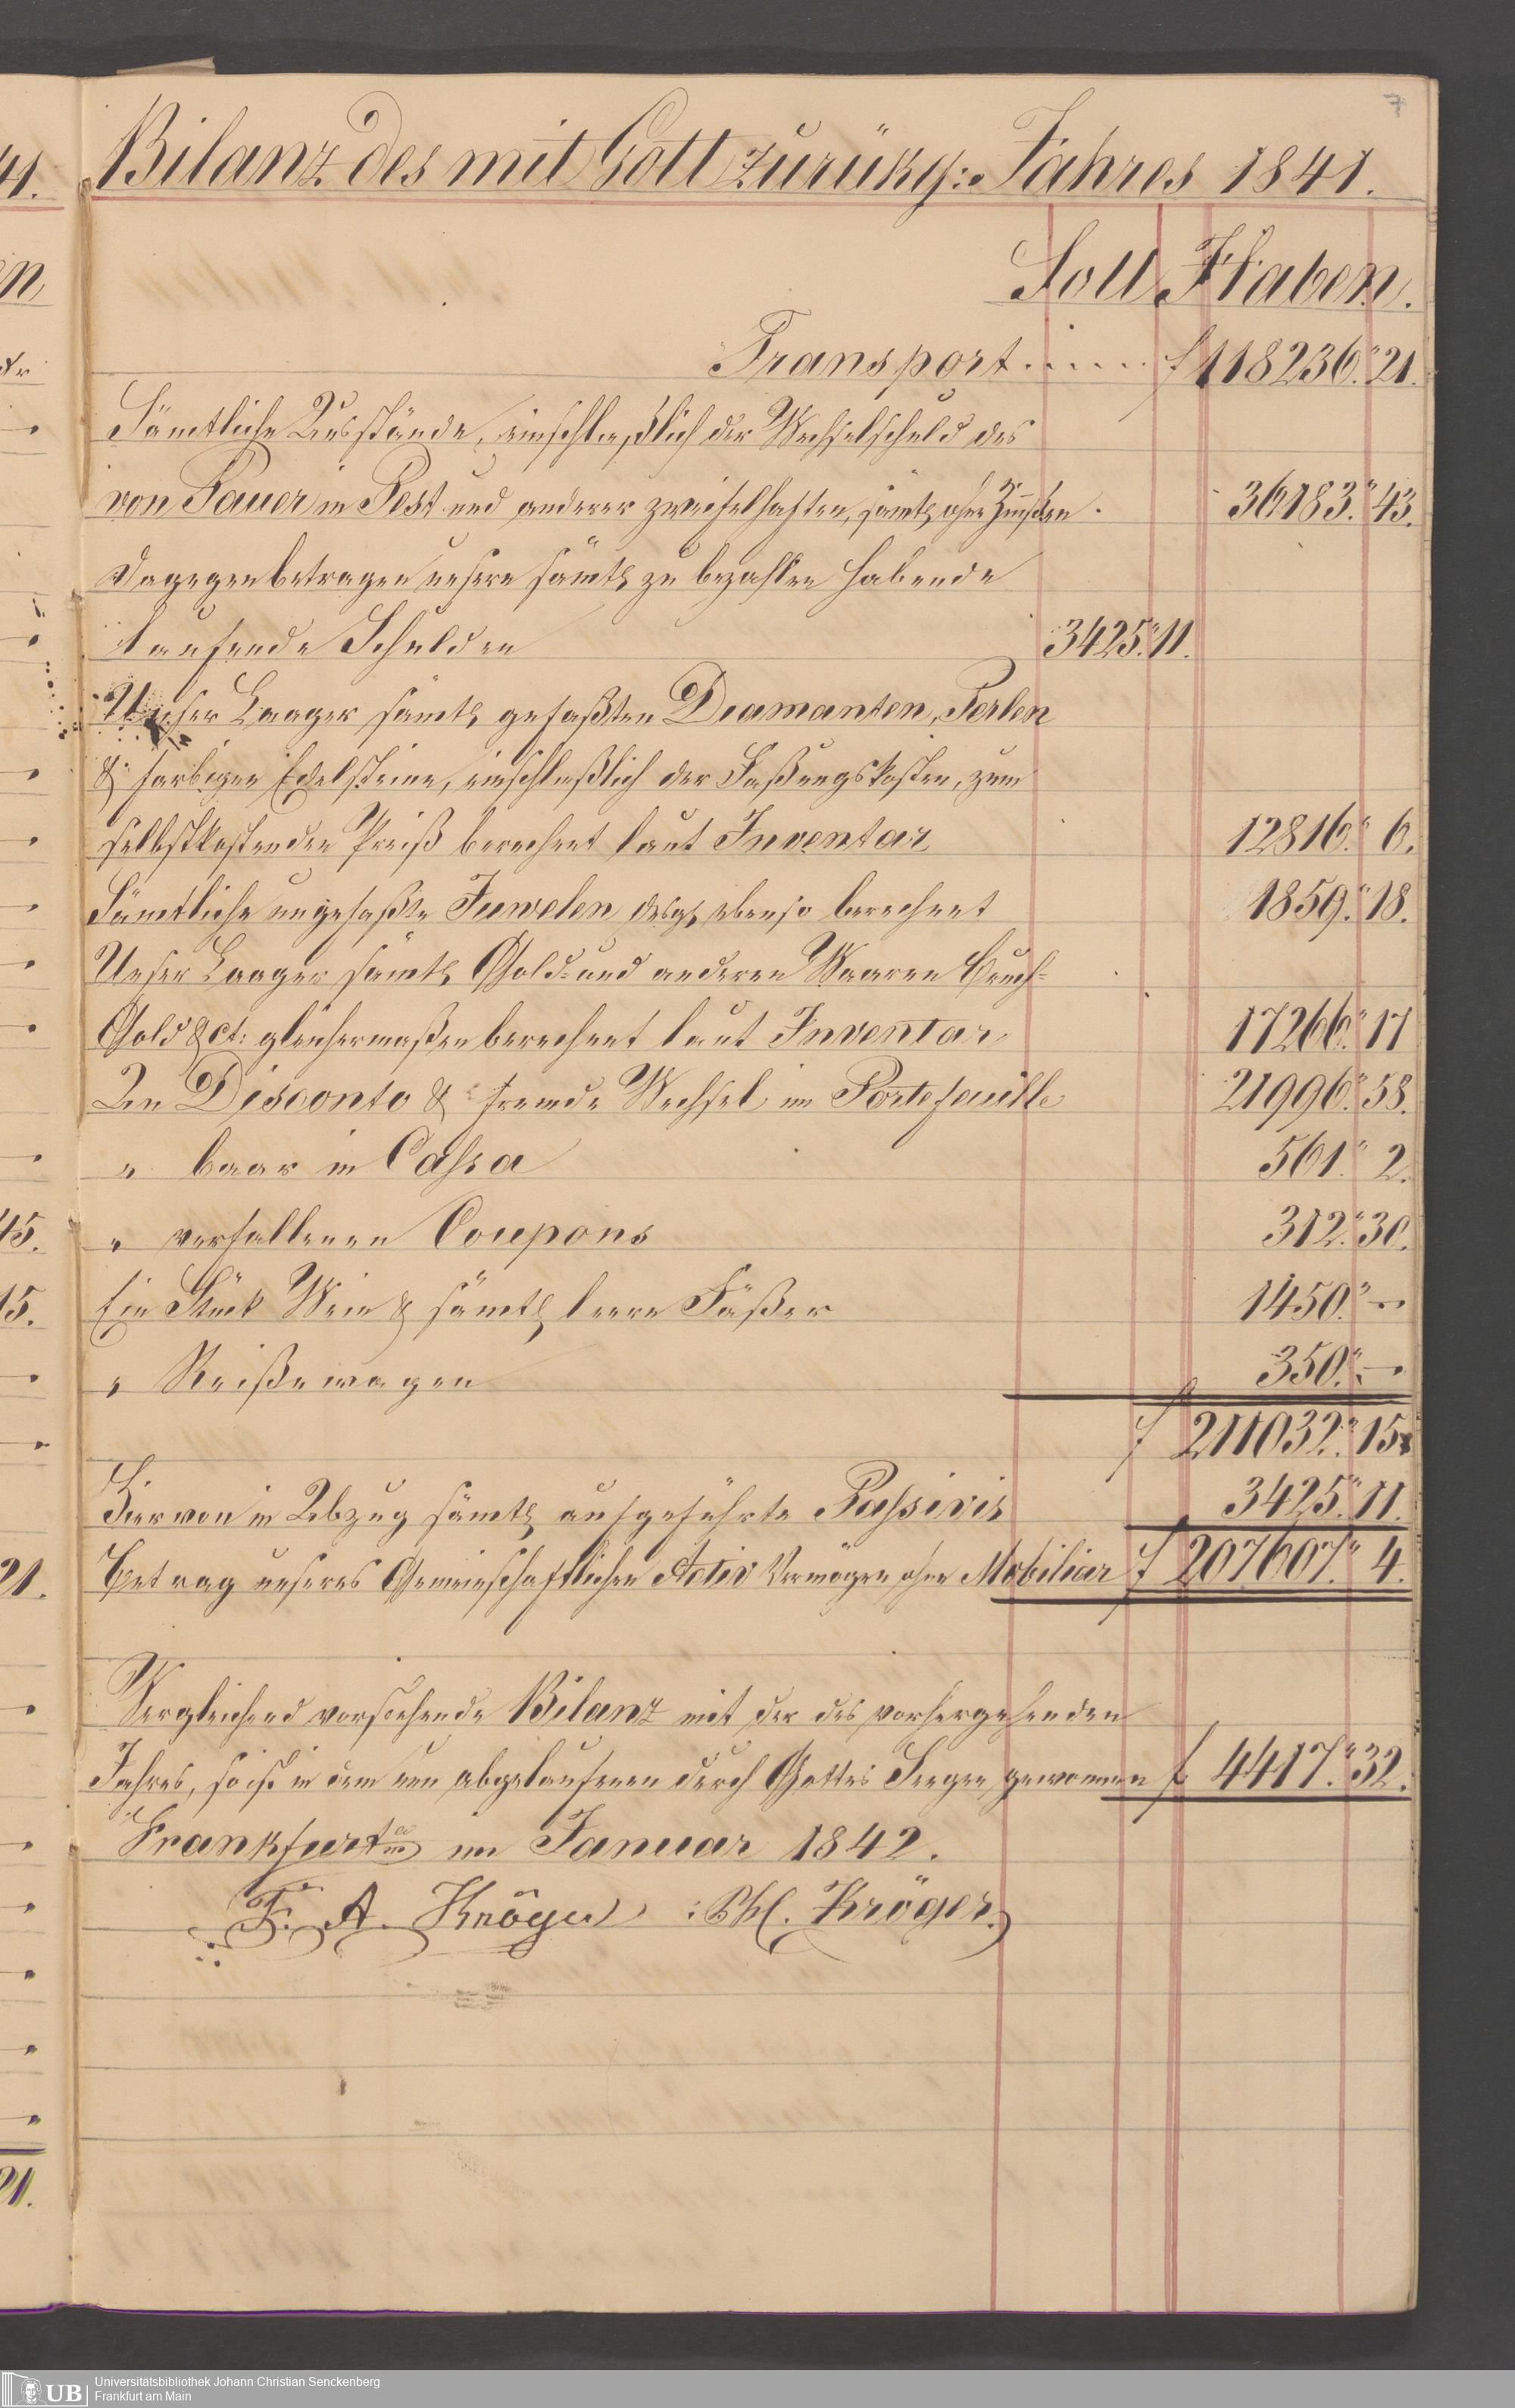 7
Bilanz des mit Gott zurükg: Jahres 1841.
Soll Haben.
Transport . . . . . f 118236." 21.
Sämtliche Ausstände, einschließlich der Wechselschuld des
von Pauer in Pest und anderer zweifelhaften, sämtl ohne Zinßen. 36183." 43.
Dagegen betragen unsere sämtl zu bezahlen habende
laufende Schulden 3425." 11.
Unser Laager sämtl gefaßten Diamanten, Perlen
& farbigen Edelsteine, einschließlich der Faßungskosten, zum
selbstkostenden Preiß berechnet laut Inventar 12816." 6.
Sämtliche ungefaßte Juwelen desgl ebenso berechnet 1859." 18.
Unser Laager sämtl Gold- und anderen Waaren Bruch-
Gold &ct: gleichermaßen berechnet laut Inventar 17266." 17
An Disconto & fremde Wechsel im Portefeuille 21996." 58.
" baar in Cassa 561." 2.
" verfallenen Coupons 312." 30.
Ein Stück Wein & sämtl leere Fäßer 1450." –
" Reißewagen 350." –
f 211032." 15
Hiervon in Abzug sämtl aufgeführte Passivis 3425." 11.
Betrag unseres Gemeinschaftlichen Activ Vermögen ohne Mobiliar f 207607." 4.
Vergleichend vorstehende Bilanz mit der des vorhergehenden
Jahres, so ist in dem nun abgelaufenen durch Gottes Seegen gewonnen f 4417." 32.
Frankfurt a/m im Januar 1842.
F. A. Kröger Phl. Kröger.
41.
en
45.
15.
21.
21.
UB
Universitätsbibliothek Johann Christian Senckenberg
Frankfurt am Main